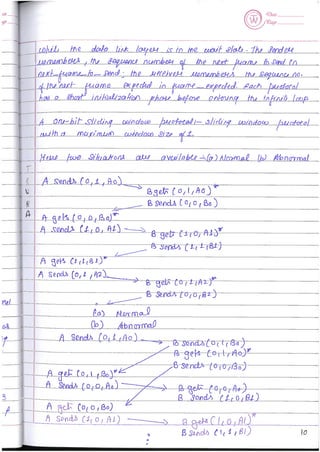 Date
Page
While the data link layer is in the wait state. The sender
remembers, the sequence number of the next frame to send in
next-frame-to-send; the receiver remembers the sequence no.
of the next frame expected in frame-expected. Each protocol
has a short initialization phase before entering the infinite loop.
A one-bit sliding window protocol:- sliding window protocol
with a maximum window size of 1.
Here two situations are available:- (a) Normal (b) Abnormal
A sends (0,1,A0)
B gets (0,1,A0)*
B sends (0,0,B0)
A gets (0,0,B0)*
A sends (1,0,A1)
B gets (1,0,A1)*
B sends (1,1,B1)
A gets (1,1,B1)*
A sends (0,1,A2)
B gets (0,1,A2)*
B sends (0,0,B2)
(a) Normal
(b) Abnormal
A sends (0,1,A0)
B sends (0,1,B0)
B gets (0,1,A0)*
A gets (0,1,B0)*
B sends (0,0,B0)
A sends (0,0,A0)
B gets (0,0,A0)
B sends (1,0,B1)
A gets (0,0,B0)
A sends (1,0,A1)
B gets (1,0,A1)*
B sends (1,1,B1)
10